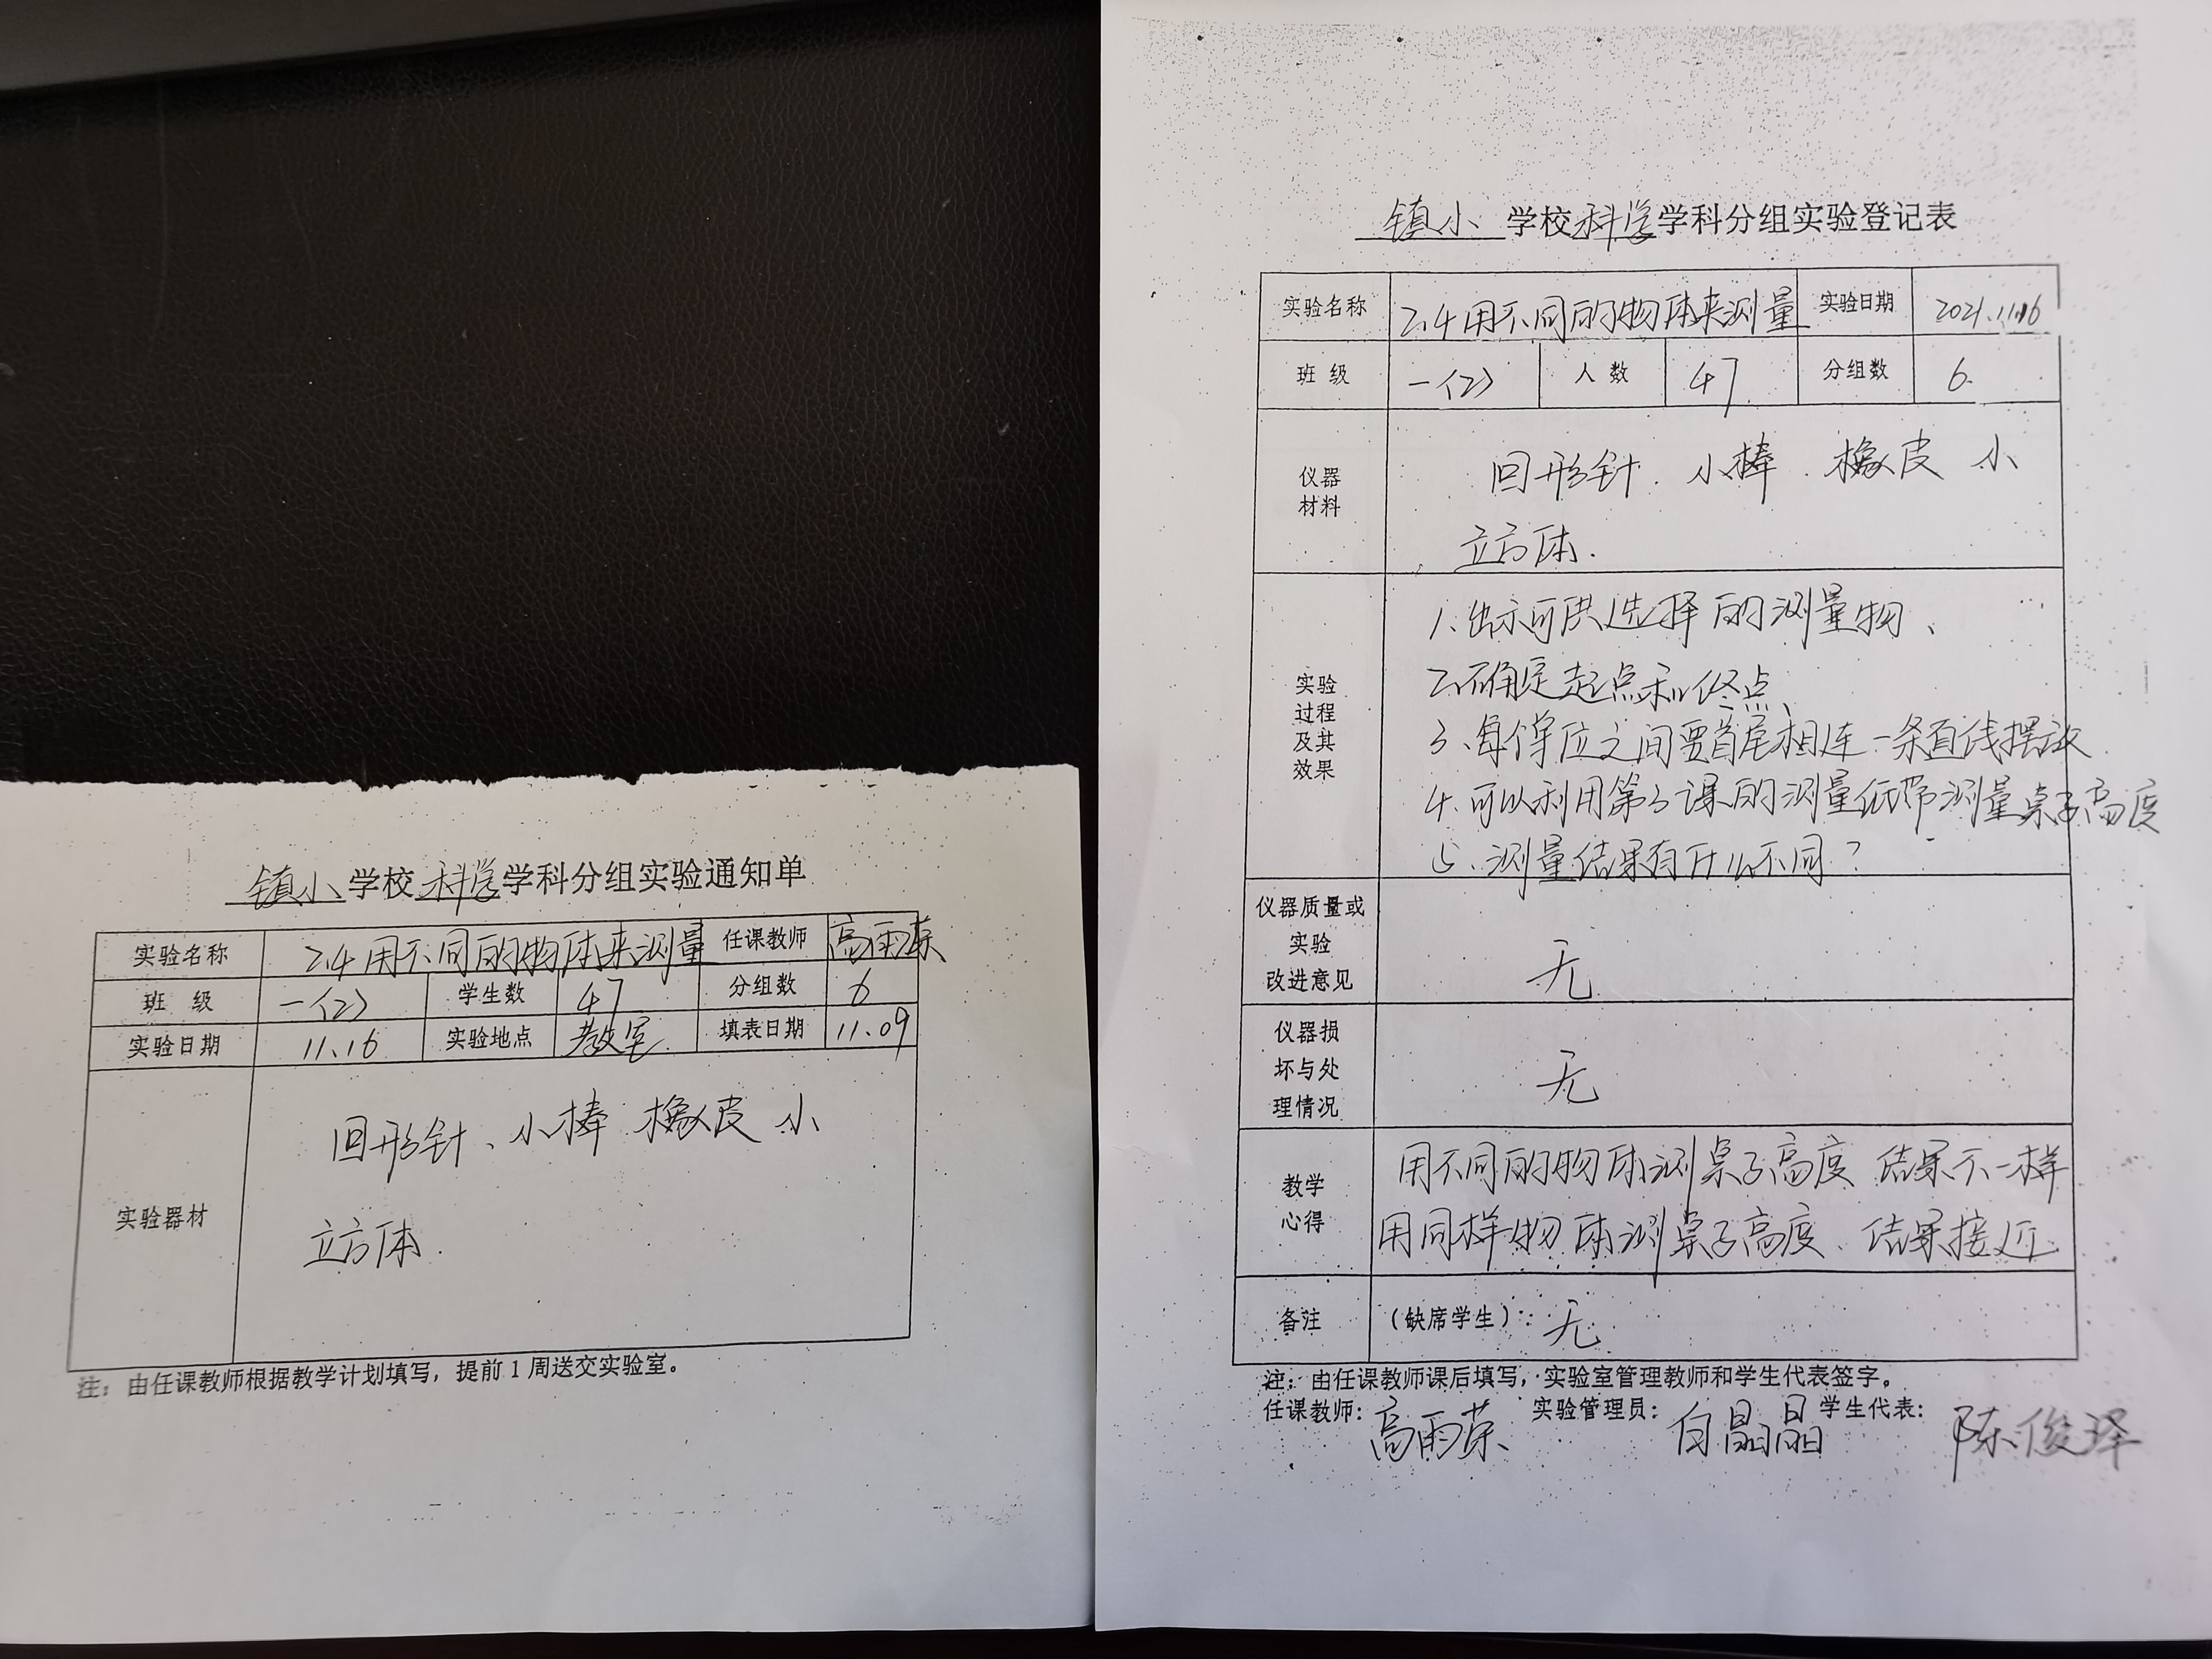 镇小 学校 科学 学科分组实验通知单
实验名称 2.4用不同的物体来测量 任课教师 高雨荥
班 级 一(2) 学生数 47 分组数 6
实验日期 11.16 实验地点 教室 填表日期 11.09
实验器材
回形针、小棒 橡皮 小
立方体.
注：由任课教师根据教学计划填写，提前1周送交实验室。
镇小 学校 科学 学科分组实验登记表
实验名称 2.4用不同的物体来测量 实验日期 2021.11.16
班 级 一(2) 人 数 47 分组数 6.
仪器
材料
回形针. 小棒. 橡皮 小
立方体.
实验
过程
及其
效果
1.出示可供选择的测量物、
2.确定起点和终点、
3、每个单位之间要首尾相连一条直线摆放
4.可以利用第3课的测量纸带测量桌子高度
5.测量结果有什么不同？
仪器质量或
实验
改进意见
无
仪器损
坏与处
理情况
无
教学
心得
用不同的物体测桌子高度 结果不一样
用同样物体测桌子高度、结果接近.
备注 （缺席学生）: 无
注：由任课教师课后填写，实验室管理教师和学生代表签字。
任课教师：高雨荥 实验管理员：白晶晶 学生代表：陈俊泽